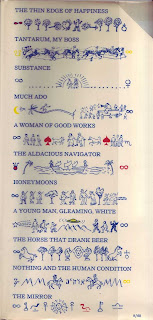 THE THIN EDGE OF HAPPINESS
TANTARUM, MY BOSS
SUBSTANCE
MUCH ADO
A WOMAN OF GOOD WORKS
THE AUDACIOUS NAVIGATOR
HONEYMOONS
A YOUNG MAN, GLEAMING, WHITE
THE HORSE THAT DRANK BEER
NOTHING AND THE HUMAN CONDITION
THE MIRROR